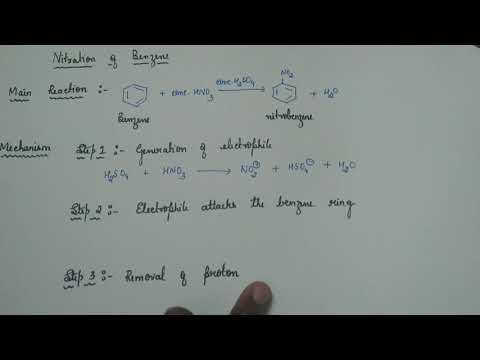 Nitration of Benzene
Main Reaction :- + conc. HNO3 conc. H2SO4 NO2 + H2O
Benzene nitrobenzene
Mechanism Step 1 :- Generation of electrophile
H2SO4 + HNO3 → NO2⊕ + HSO4⊖ + H2O
Step 2 :- Electrophile attacks the benzene ring
Step 3 :- Removal of proton